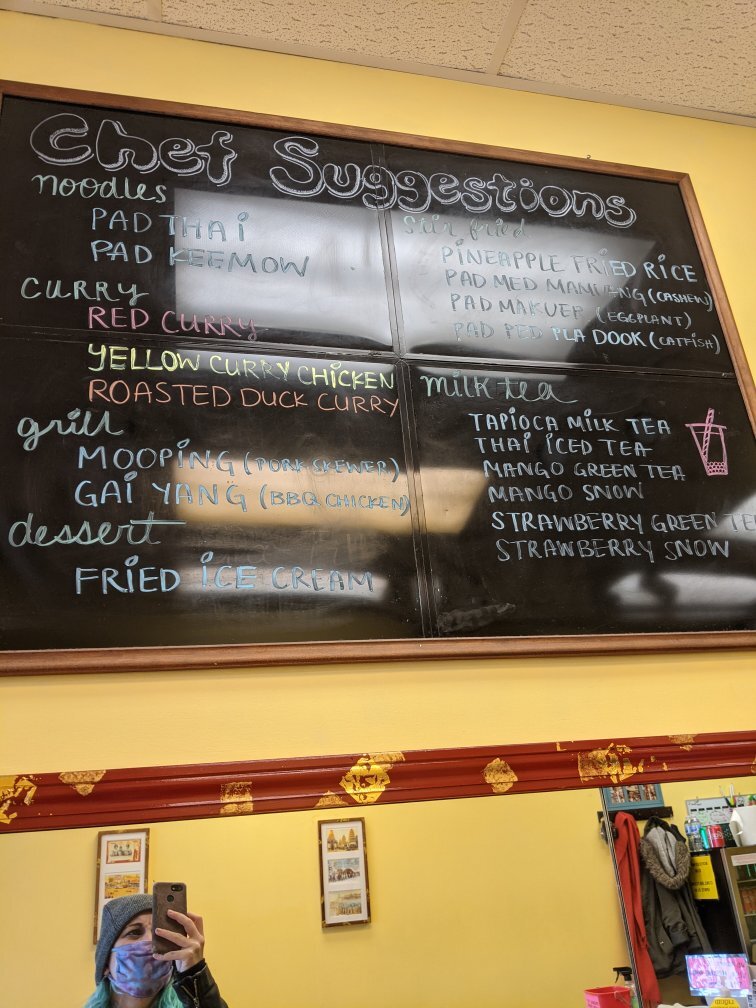 Chef Suggestions
noodles
PAD THAI
PAD KEEMOW
CURRY
RED CURRY
YELLOW CURRY CHICKEN
ROASTED DUCK CURRY
grill
MOOPING (PORK SKEWER)
GAI YANG (BBQ CHICKEN)
dessert
FRIED ICE CREAM
stir fried
PINEAPPLE FRIED RICE
PAD MED MAMUENG (CASHEW)
PAD MAKUER (EGGPLANT)
PAD PED PLA DOOK (CATFISH)
milk tea
TAPIOCA MILK TEA
THAI ICED TEA
MANGO GREEN TEA
MANGO SNOW
STRAWBERRY GREEN TE
STRAWBERRY SNOW